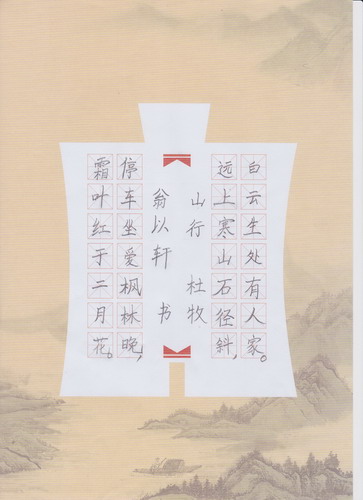 山行 杜牧
远上寒山石径斜，
白云生处有人家。
停车坐爱枫林晚，
霜叶红于二月花。
翁以轩 书